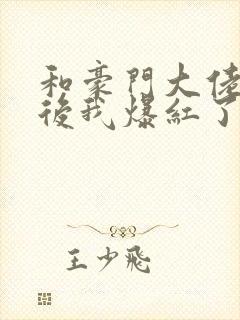 和豪門大佬
後我爆紅了
王少飛